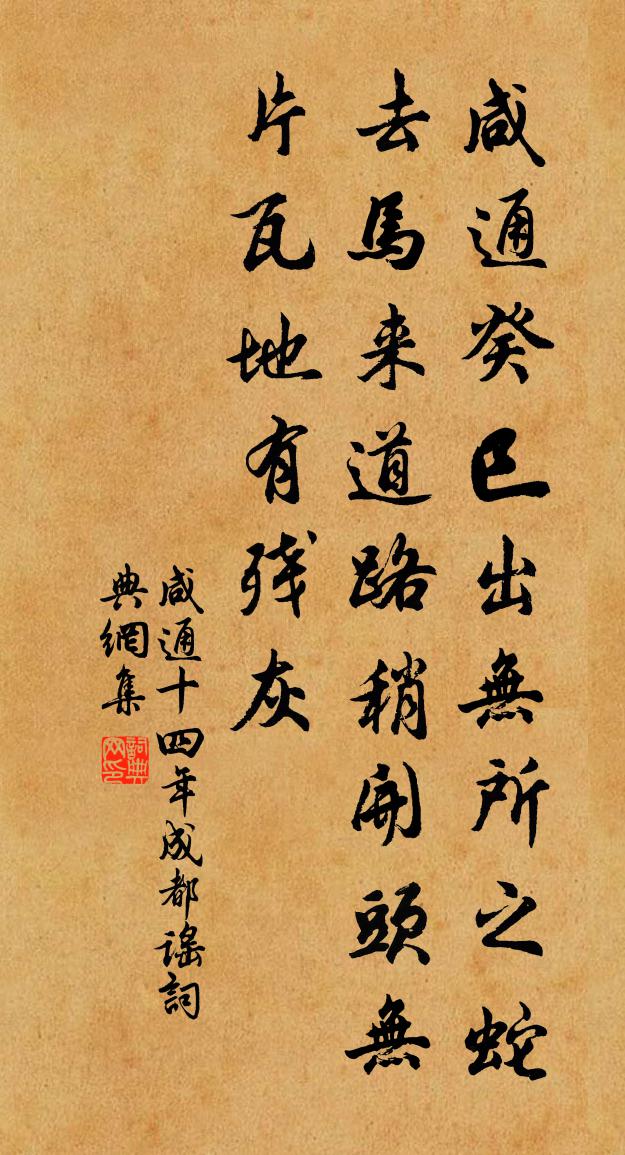 咸通癸巳出無所之蛇
去馬来道路稍開頭無
片瓦地有残灰
咸通十四年成都谣詞
典網集
詞典
网印